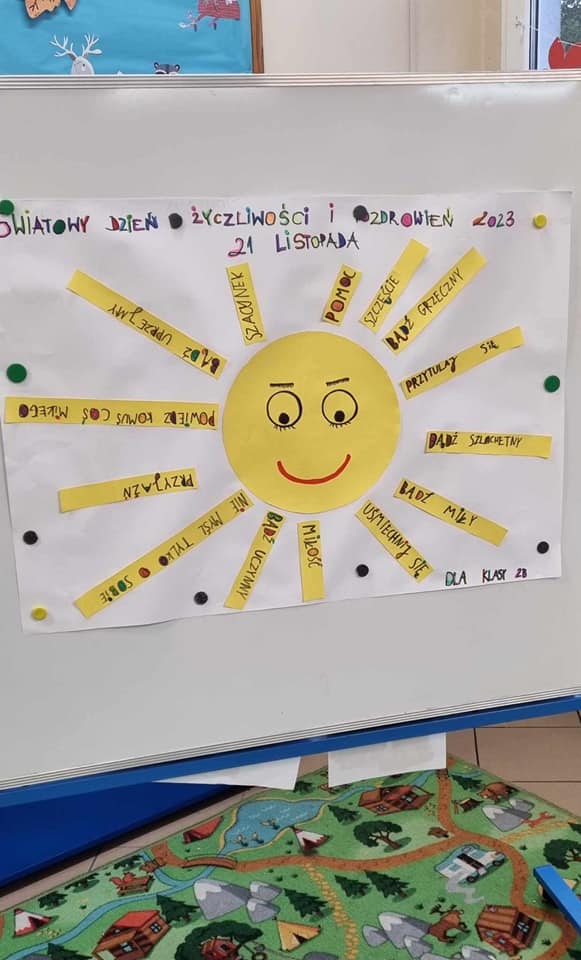 ŚWIATOWY DZIEŃ ŻYCZLIWOŚCI I POZDROWIEŃ 2023
21 LISTOPADA
SZACUNEK
POMOC
SZCZĘŚCIE
BĄDŹ GRZECZNY
PRZYTULAJ SIĘ
BĄDŹ SZLACHETNY
BĄDŹ MIŁY
UŚMIECHNIJ SIĘ
MIŁOŚĆ
BĄDŹ UCZYNNY
NIE MYŚL TYLKO O SOBIE
PRZYJAŹŃ
POWIEDZ KOMUŚ COŚ MIŁEGO
BĄDŹ UPRZEJMY
DLA KLASY 2B